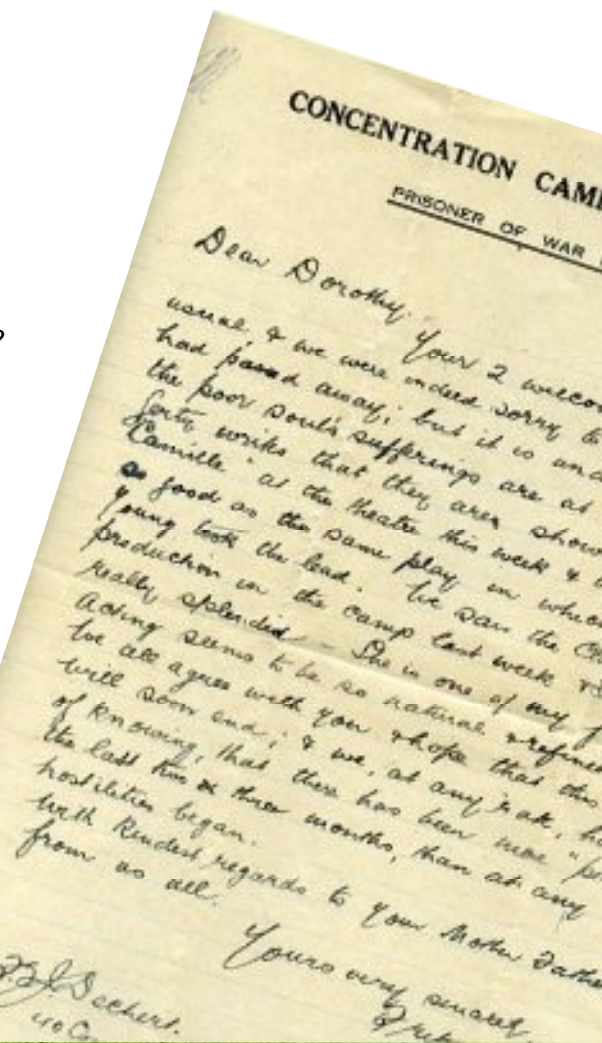 CONCENTRATION CAM
PRISONER OF WAR
Dear Dorothy.
Your 2
usual, & we were indeed sorry
had passed away; but it is
the poor soul's sufferings are at
writes that they are show
"Camille" at the theatre this week &
so good as the same play in
Young took the lead. We saw the
production in the camp last week
really splendid — She is one of my
acting seems to be so natural & refine
We all agree with you & hope that this
will soon end; & we, at any rate,
of knowing, that there has been more
the last two or three months, than at any
hostilities began.
With kindest regards to your Mother Father
from us all.
Yours very sincerely